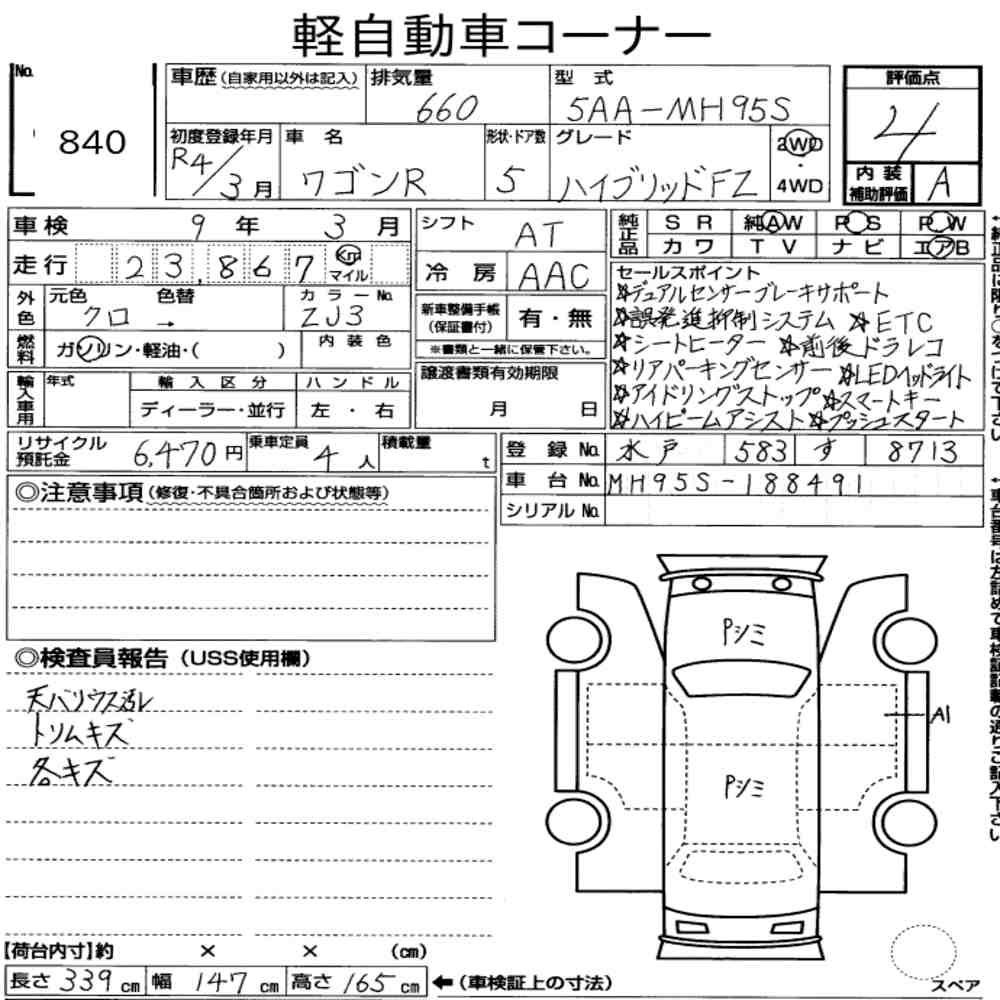 軽自動車コーナー
No.
840
車歴(自家用以外は記入)
排気量
660
型式
5AA-MH95S
評価点
4
内装補助評価
A
初度登録年月
R4/3月
車名
ワゴンR
形状・ドア数
5
グレード
ハイブリッドFZ
2WD
・
4WD
車検 9年 3月
走行 23,867 Km マイル
外色
元色 色替
クロ →
カラーNo.
ZJ3
燃料
ガソリン・軽油・( )
内装色
輸入車用
年式
輸入区分
ディーラー・並行
ハンドル
左・右
リサイクル預託金 6,470円
乗車定員 4人
積載量 t
シフト AT
冷房 AAC
新車整備手帳(保証書付) 有・無
※書類と一緒に保管下さい。
譲渡書類有効期限
月 日
純正品
SR 純AW PS PW
カワ TV ナビ エアB
セールスポイント
☆デュアルセンサーブレーキサポート
☆誤発進抑制システム ☆ETC
☆シートヒーター ☆前後ドラレコ
☆リアパーキングセンサー ☆LEDヘッドライト
☆アイドリングストップ ☆スマートキー
☆ハイビームアシスト ☆プッシュスタート
登録No. 水戸 583 す 8713
車台No. MH95S-188491
シリアルNo.
◎注意事項(修復・不具合箇所および状態等)
◎検査員報告(USS使用欄)
天バリウス汚レ
トリムキズ
各キズ
Pシミ
A1
Pシミ
【荷台内寸】約 × × (cm)
長さ 339cm 幅 147cm 高さ 165cm
←(車検証上の寸法)
スペア